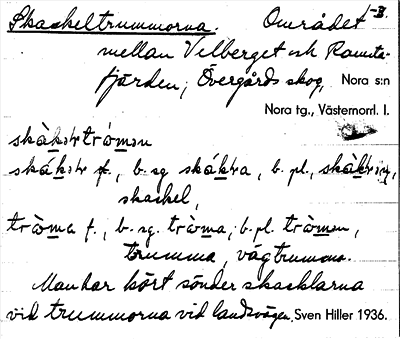 Skackeltrummorna. Området
mellan Velberget och Ramsta-
fjärden; Övergårds skog, Nora s:n
Nora tg., Västernorrl. l.
skàkərtròmən
skákər f., b. sg. skákra, b. pl., skàkrəɳ,
skackel,
tròma f., b. sg. tròma, b. pl. tròmən,
trumma, vägtrumma.
Man har kört sönder skacklarna
vid trummorna vid landsvägen. Sven Hiller 1936.